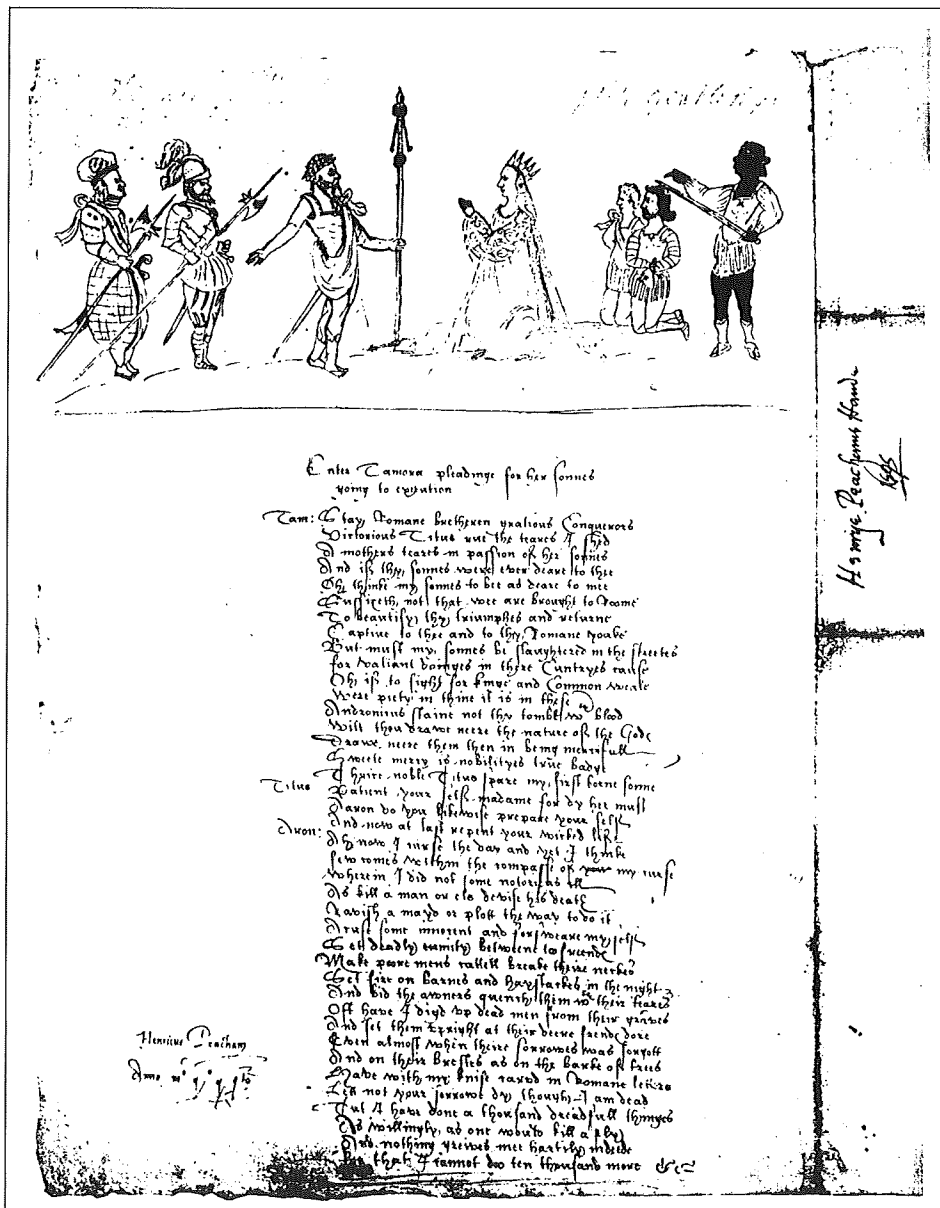 Enter Tamora pleadinge for her sonnes
going to execution
Tam: Stay Romane bretheren gratious Conquerors
Victorious Titus rue the teares I shed
A mothers teares in passion of her sonnes
And if thy sonnes were ever deare to thee
Oh thinke my sonnes to bee as deare to mee
Suffizeth not that wee are brought to Roome
To beautify thy triumphes and returne
Captive to thee and to thy Romane yoake
But must my sonnes be slaughtered in the streetes
for valiant doinges in there Cuntryes cause
Oh if to fight for kinge and Common weale
Were piety in thine it is in these
Andronicus staine not thy tombe wth blood
Wilt thou drawe neere the nature of the Gods
Drawe neere them then in being mercifull
Sweete mercy is nobilityes true badge
Thrice noble Titus spare my first borne sonne
Titus Patient your self madame for dy hee must
Aaron do you likewise prepare your self
And now at last repent your wicked life
Aron: Ah now I curse the day and yet I thinke
few comes within the compasse of my curse
Wherein I did not some notorious ill
As kill a man or els devise his death
Ravish a mayd or plott the way to do it
Acuse some innocent and forsweare my self
Set deadly enmity betweene too freinds
Make poore mens cattell breake theire neckes
Set fire on barnes and haystackes in the night
And bid the owners quench them wth their teares
Oft have I digd vp dead men from their graves
And set them vpright at their deere frends dore
Even almost when theire sorrowes was forgott
And on their brestes as on the barke of trees
Have with my knife carvd in Romane letters
Lett not your sorrowe dy though I am dead
Tut I have done a thousand dreadfull thinges
As willingly as one would kill a fly
And nothing greives mee hartily indeede
But that I cannot doo ten thousand more &c
Henricus Peacham
Anno
Henrye Peachams Hande
1595